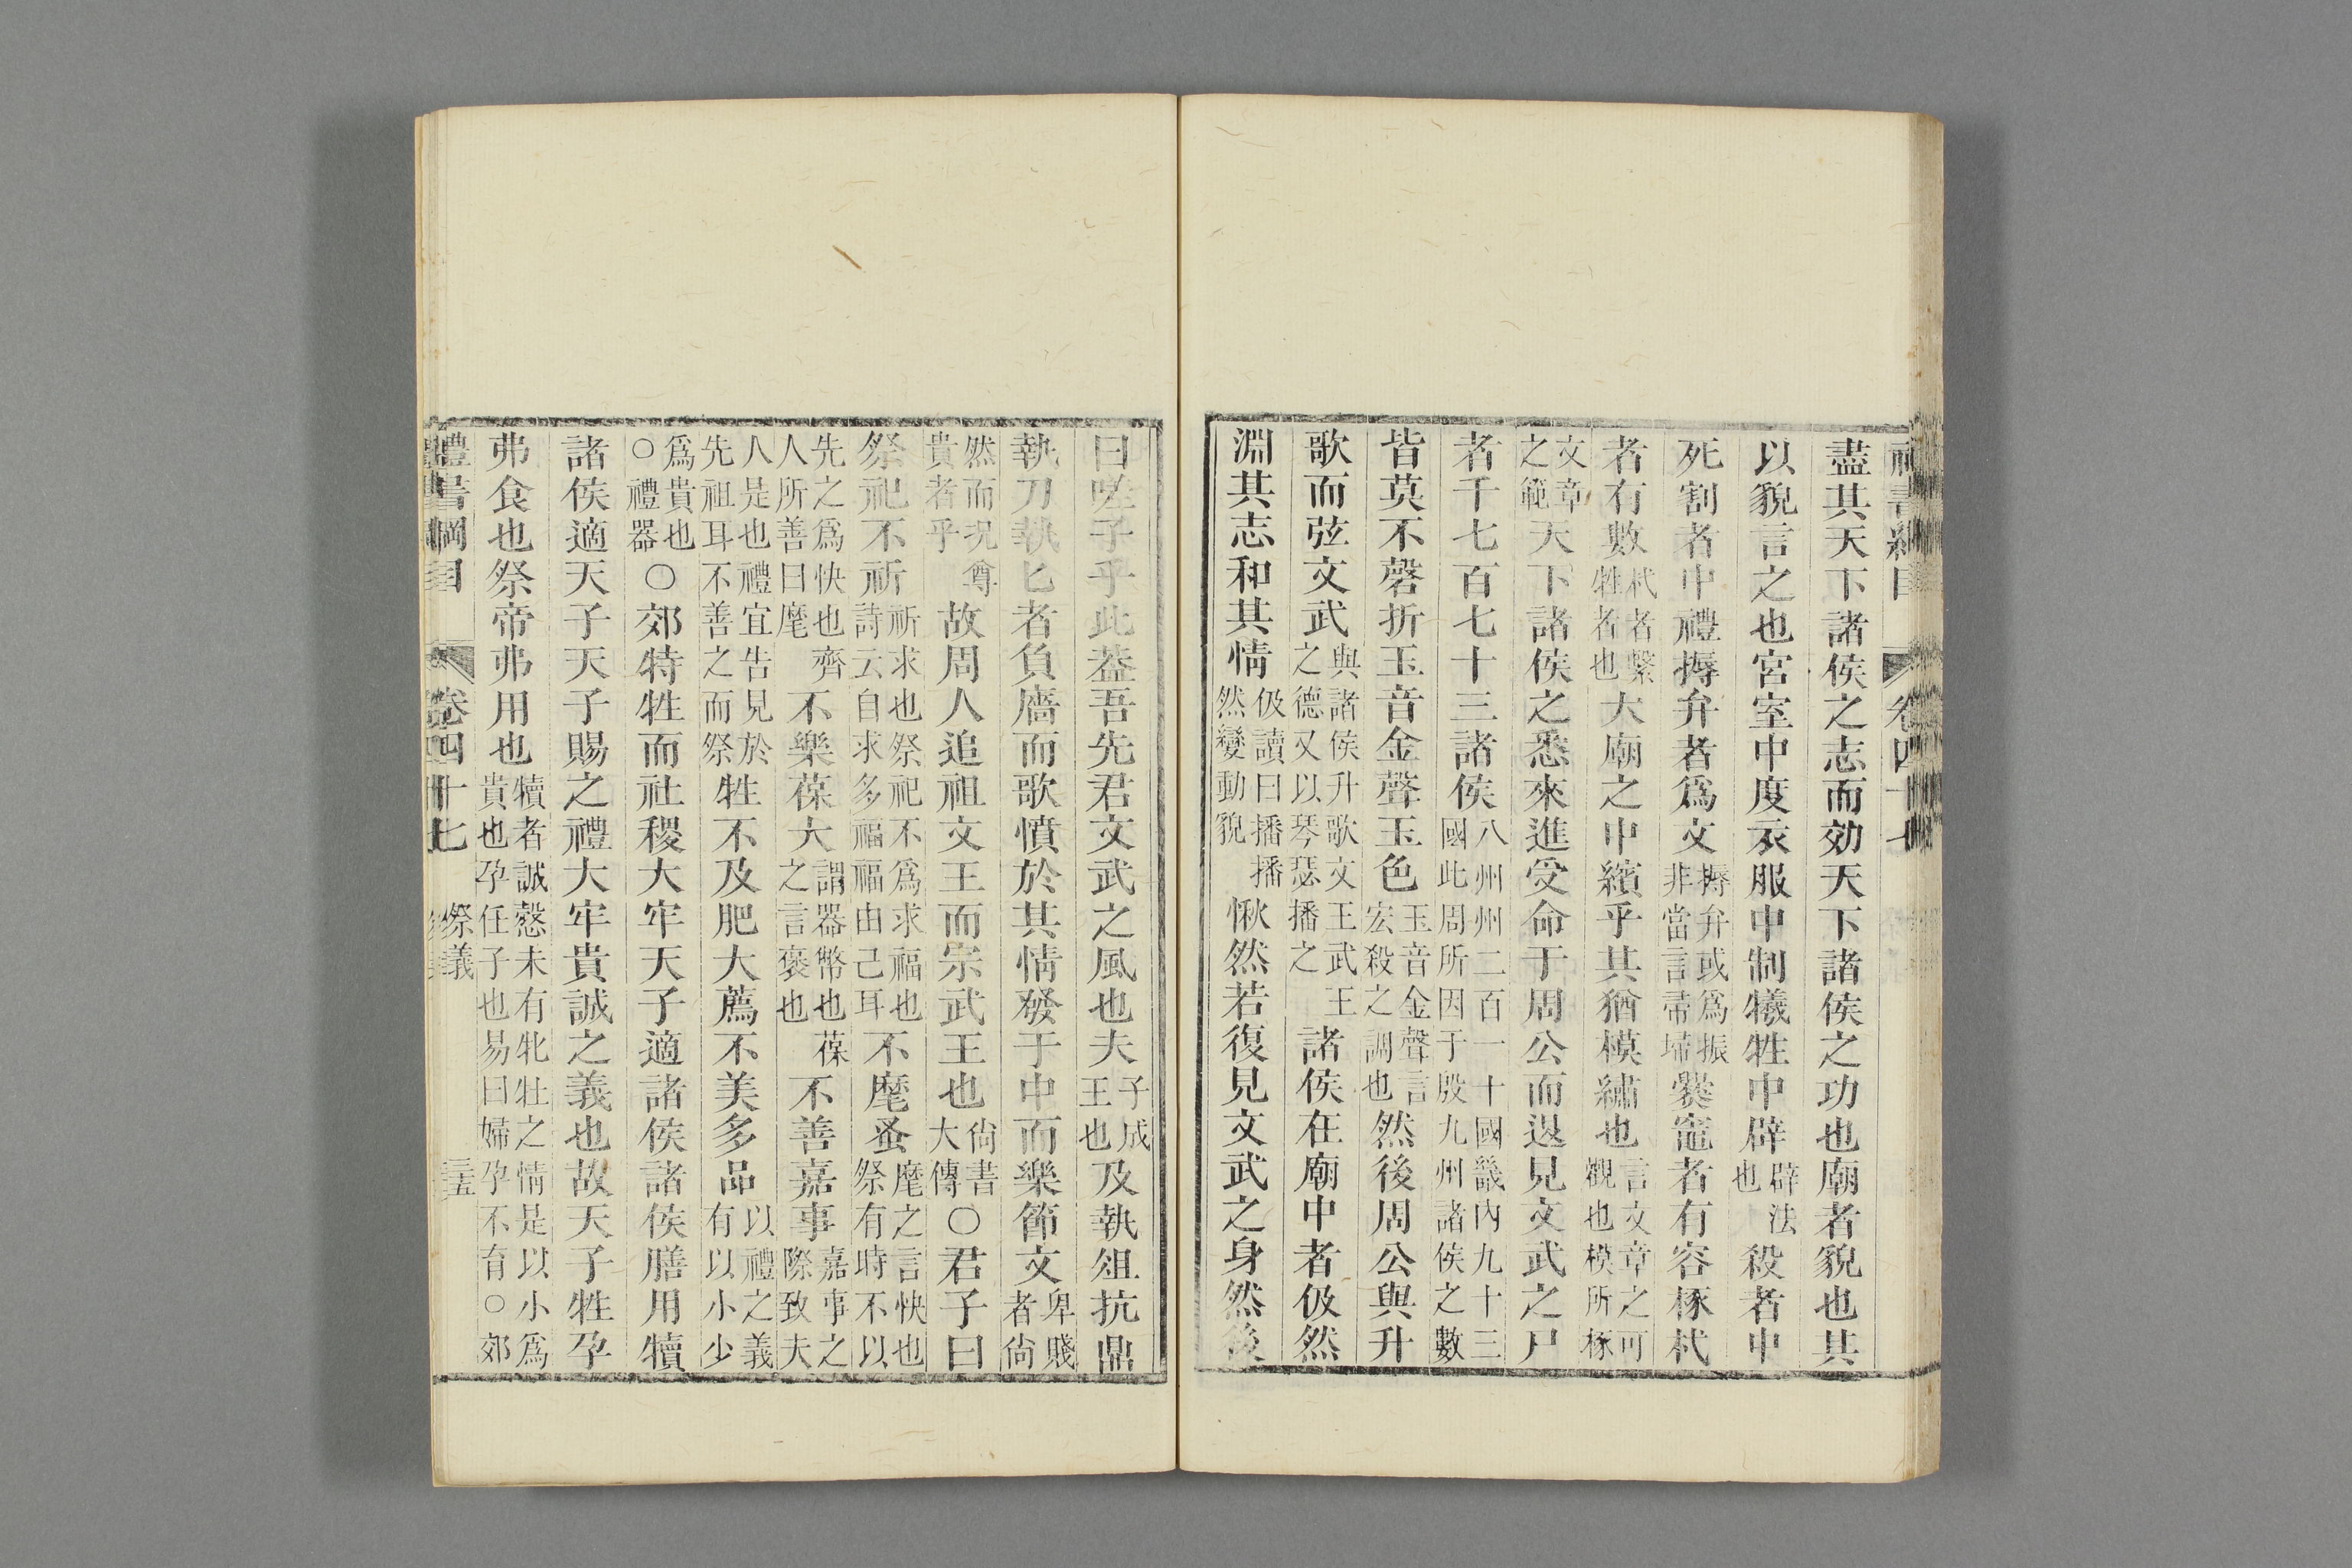 盡其天下諸侯之志而効天下諸侯之功也廟者貌也其
以貌言之也宮室中度衣服中制犧牲中辟辟法也殺者中
死割者中禮搙弁者爲文搙弁或爲振非當言帚埽爨竈者有容椓杙
者有數杙者繫牲者也大廟之中繽乎其猶模繡也言文章之可觀也模所椓
文章之範天下諸侯之悉來進受命于周公而退見文武之尸
者千七百七十三諸侯八州州二百一十國畿內九十三國此周所因于殷九州諸侯之數
皆莫不磬折玉音金聲玉色玉音金聲言宏殺之調也然後周公與升
歌而弦文武與諸侯升歌文王武王之德又以琴瑟播之諸侯在廟中者伋然
淵其志和其情伋讀曰播播然變動貌愀然若復見文武之身然後
曰嗟子乎此蓋吾先君文武之風也夫子成王也及執俎抗鼎
執刀執匕者負廧而歌憤於其情發于中而樂節文卑賤者尙
然而況尊貴者乎故周人追祖文王而宗武王也尙書大傳〇君子曰
祭祀不祈祈求也祭祀不爲求福也詩云自求多福福由己耳不麾蚤麾之言快也祭有時不以
先之爲快也齊人所善曰麾不樂葆大謂器幣也葆之言褒也不善嘉事嘉事之際致夫
人是也禮宜告見於先祖耳不善之而祭牲不及肥大薦不美多品以禮之義有以小少
爲貴也〇禮器〇郊特牲而社稷大牢天子適諸侯諸侯膳用犢
諸侯適天子天子賜之禮大牢貴誠之義也故天子牲孕
弗食也祭帝弗用也犢者誠慤未有牝牡之情是以小爲貴也孕任子也易曰婦孕不育〇郊
禮書綱目 卷四十七 祭義 三五